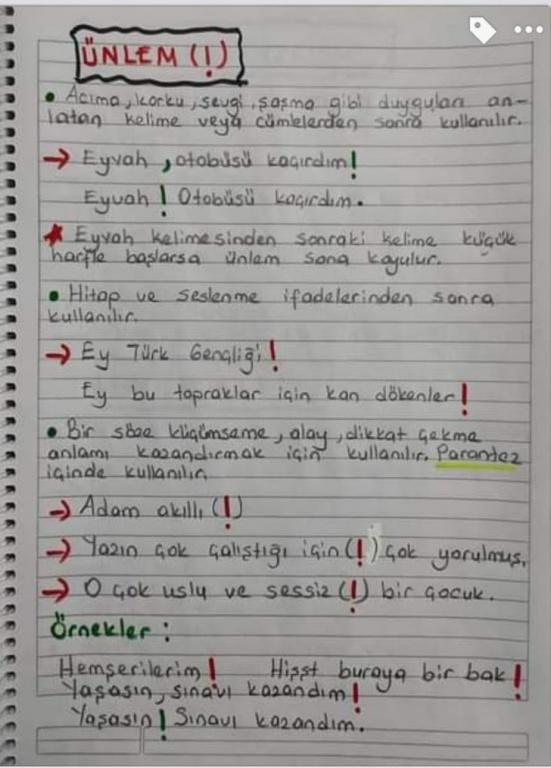 ÜNLEM (!)
• Acıma, korku, sevgi, şaşma gibi duyguları an-
latan kelime veya cümlelerden sonra kullanılır.
→ Eyvah, otobüsü kaçırdım!
Eyvah! Otobüsü kaçırdım.
★ Eyvah kelimesinden sonraki kelime küçük
harfle başlarsa ünlem sona koyulur.
• Hitap ve seslenme ifadelerinden sonra
kullanılır.
→ Ey Türk Gençliği!
Ey bu topraklar için kan dökenler!
• Bir söze küçümseme, alay, dikkat çekme
anlamı kazandırmak için kullanılır. Parantez
içinde kullanılır.
→ Adam akıllı (!)
→ Yazın çok çalıştığı için (!) çok yorulmuş.
→ O çok uslu ve sessiz (!) bir çocuk.
Örnekler:
Hemşerilerim! Hişşt buraya bir bak!
Yaşasın, sınavı kazandım!
Yaşasın! Sınavı kazandım.